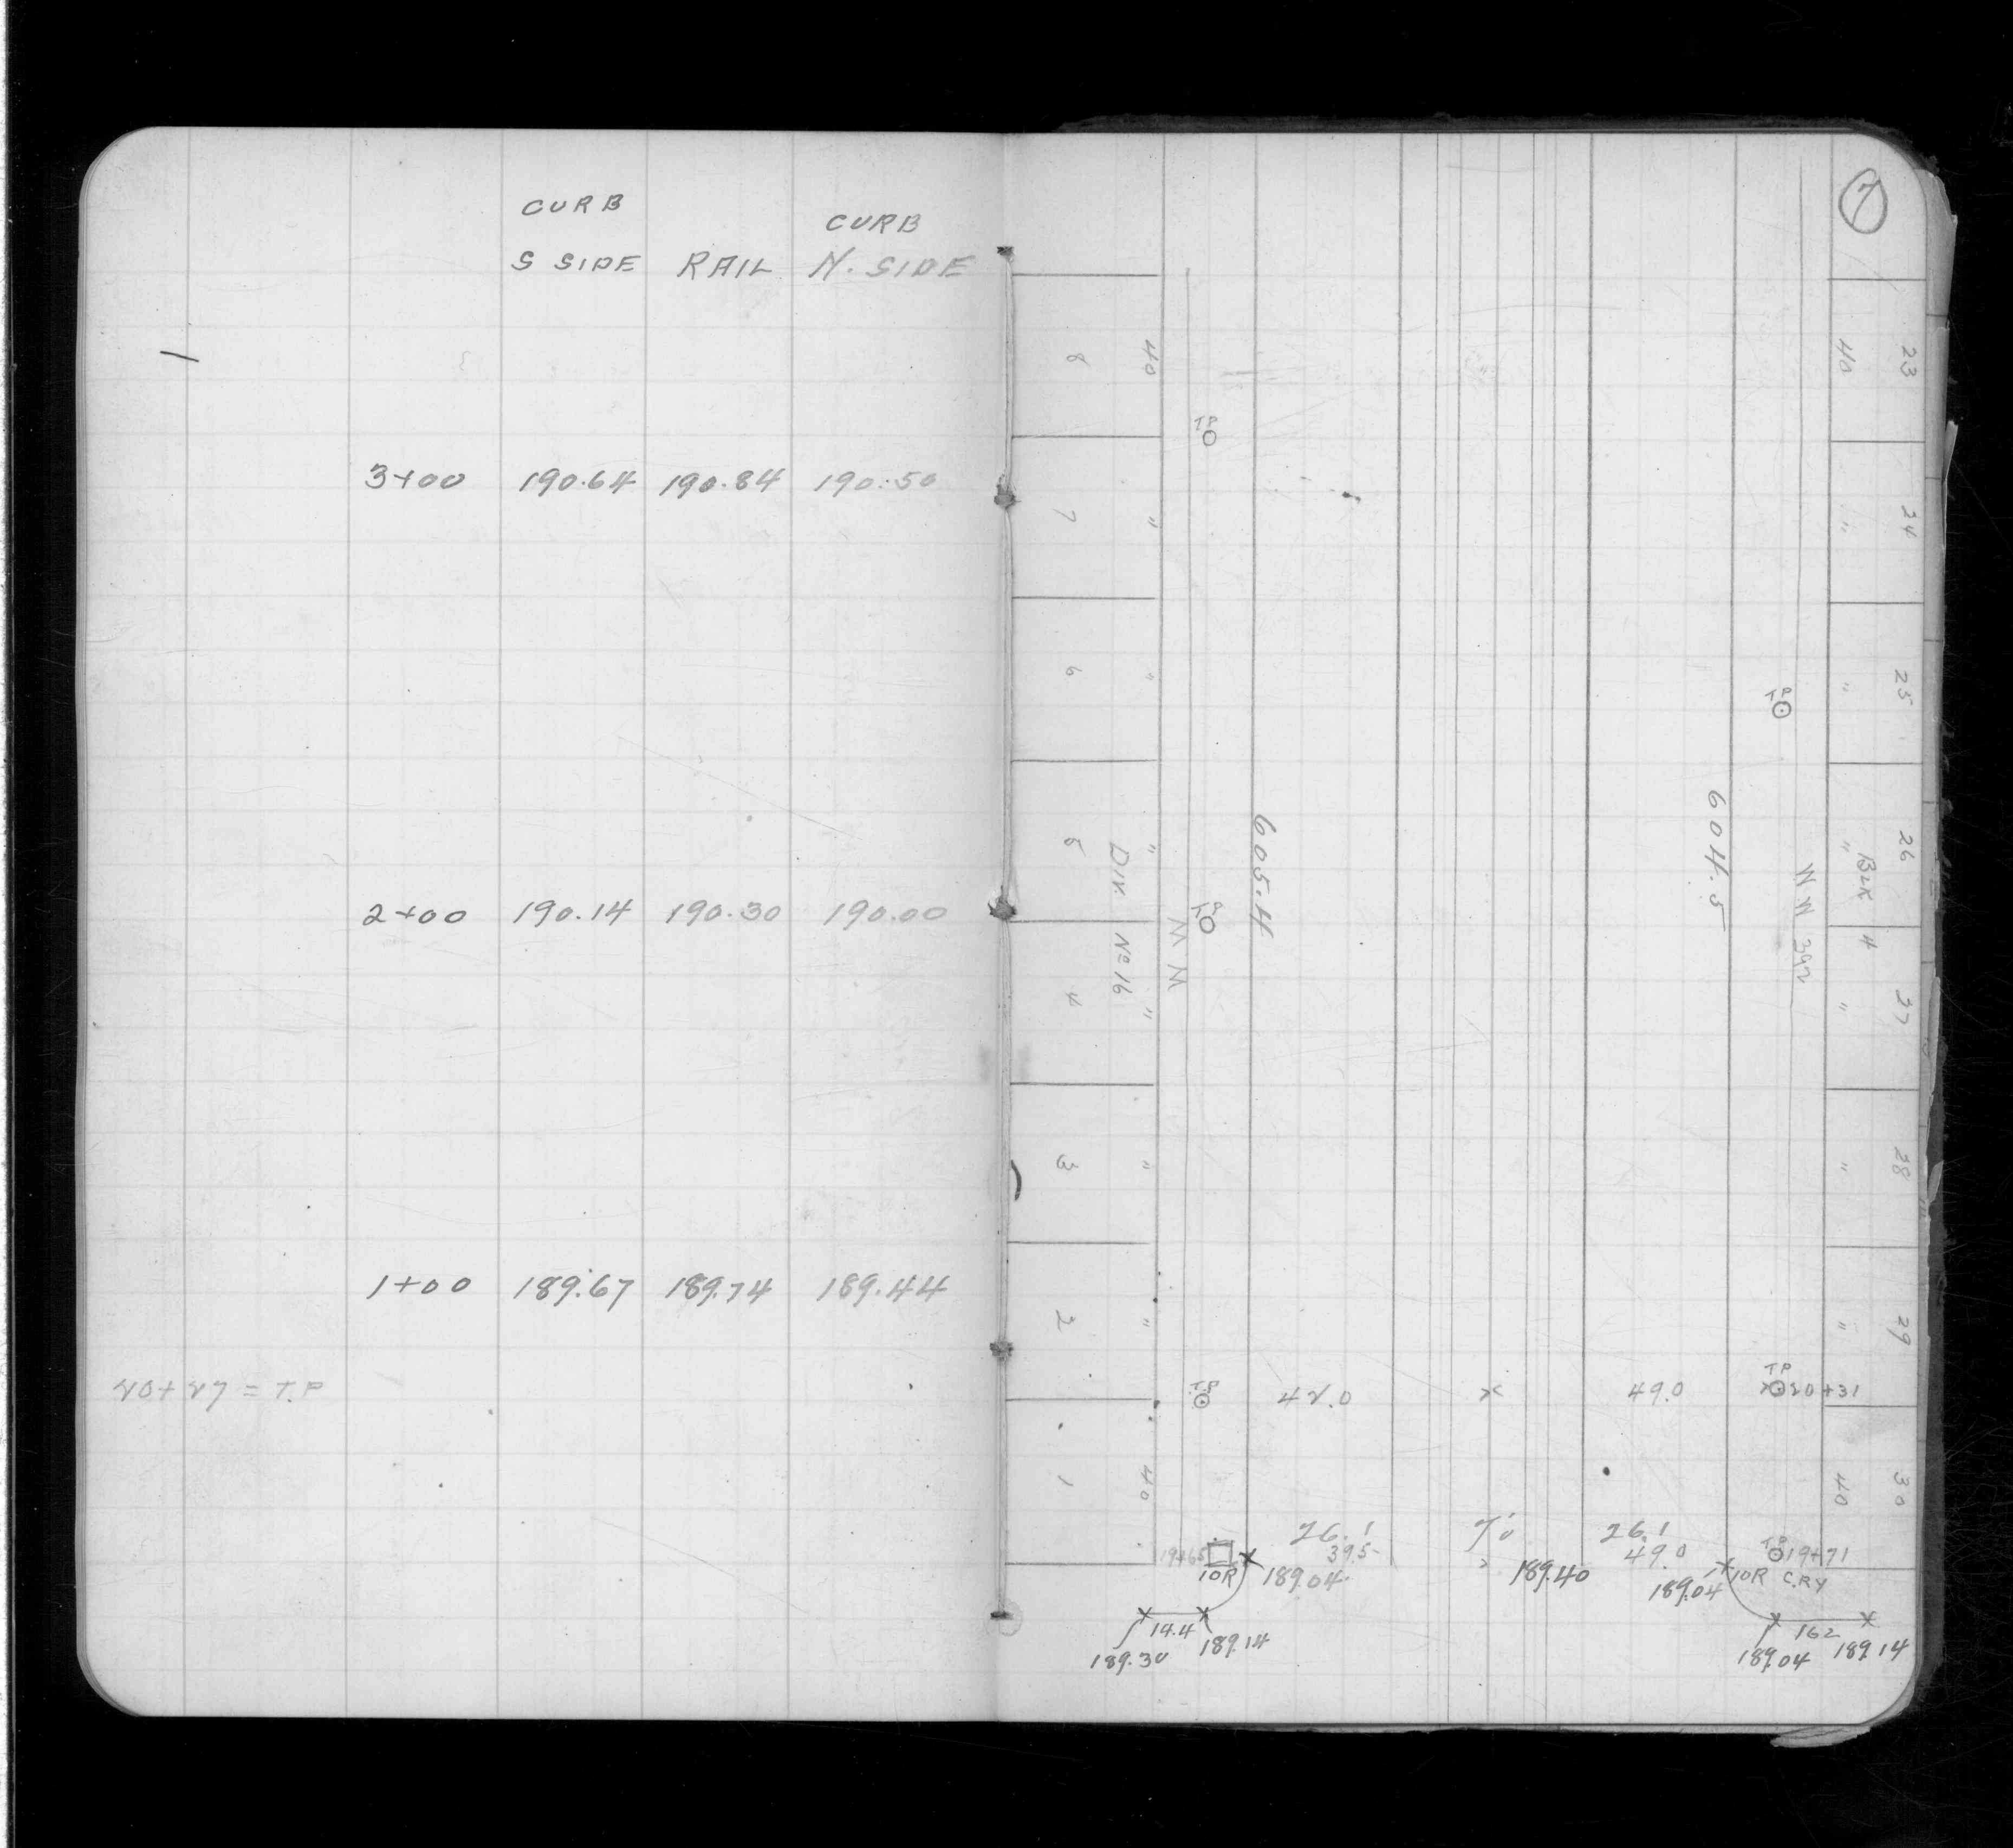 CURB CURB
S SIDE RAIL N. SIDE
3+00 190.64 190.84 190.50
2+00 190.14 190.30 190.00
1+00 189.67 189.74 189.44
20+27 = T.P
7
8 40 40 23
TP
7 " " 24
6 " " 25
TP
5 " " 26
605.4 604.5
Div. No 16
Blk 4
TP
4 " " 27
3 " " 28
2 " " 29
TP 42.0 x 49.0 TP 20+31
1 40 40 30
26.1 26.1
19+65 39.5 49.0 TP 19+71
10R 189.04 189.40 189.04 10R C.RY
14.4 162
189.30 189.14 189.04 189.14